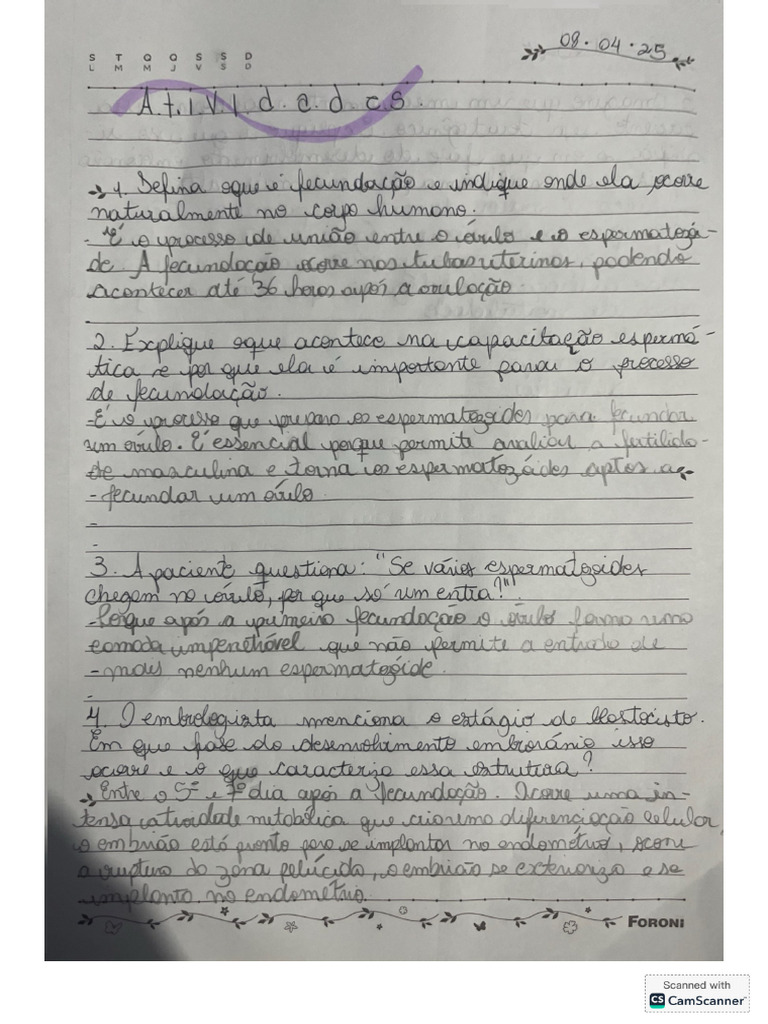 S T Q Q S S D
L M M J V S D
08.04.25
A.t.i.V.i.d.a.d.e.s.
1. Defina oque é fecundação e indique onde ela ocorre
naturalmente no corpo humano.
- É o processo de união entre o óvulo e o espermatozói-
de. A fecundação ocorre nas tubas uterinas, podendo
acontecer até 36 horas após a ovulação.
2. Explique oque acontece na capacitação espermá-
tica e por que ela é importante para o processo
de fecundação.
- É o processo que prepara os espermatozoides para fecundar
um óvulo. É essencial porque permite avaliar a fertilida-
de masculina e torna os espermatozóides aptos a
- fecundar um óvulo.
3. A paciente questiona: "Se vários espermatozoides
chegam no óvulo, por que só um entra?"
- Porque após a primeira fecundação o óvulo forma uma
camada impenetrável que não permite a entrada de
- mais nenhum espermatozóide.
4. O embrologista menciona o estágio de blastocisto.
Em que fase do desenvolvimento embrionário isso
ocorre e o que caracteriza essa estrutura?
Entre o 5º e 7º dia após a fecundação. Ocorre uma in-
tensa atividade metabólica que diferenciação celular,
o embrião está pronto para se implantar no endométrio, ocorre
a ruptura da zona pelúcida, o embrião se exterioriza e se
implanta no endométrio.
FORONI
Scanned with
CS CamScanner